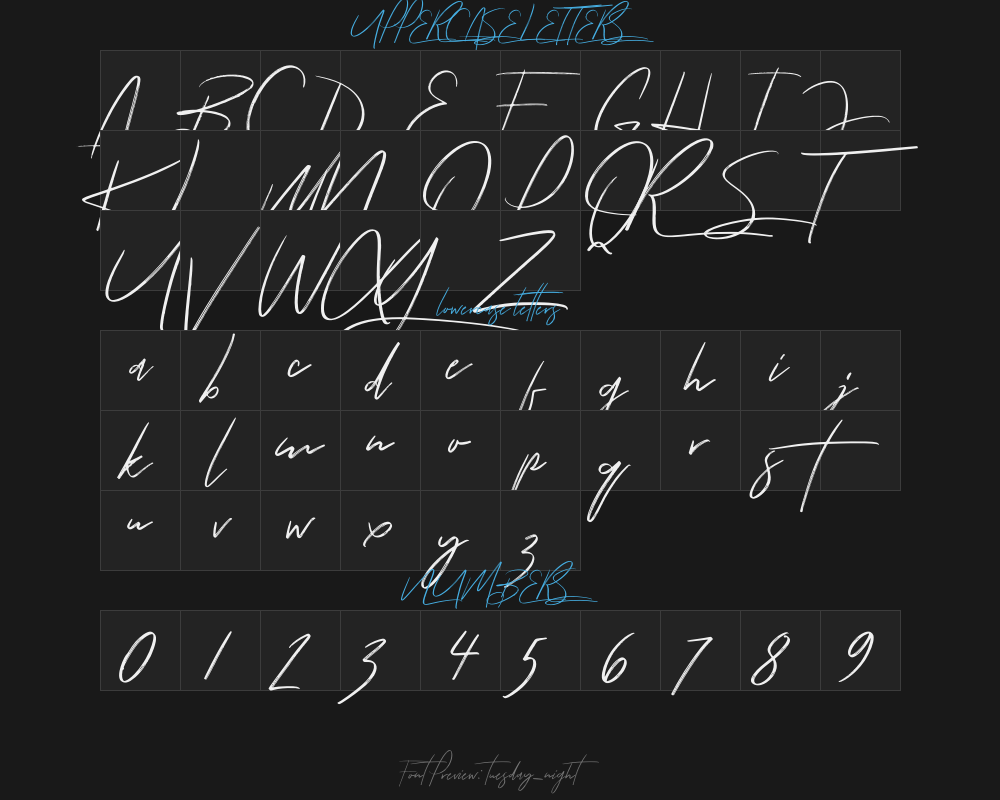 UPPERCASE LETTERS
A B C D E F G H I J
K L M N O P Q R S T
U V W X Y Z
lowercase letters
a b c d e f g h i j
k l m n o p q r s t
u v w x y z
NUMBERS
0 1 2 3 4 5 6 7 8 9
Font Preview: tuesday_night